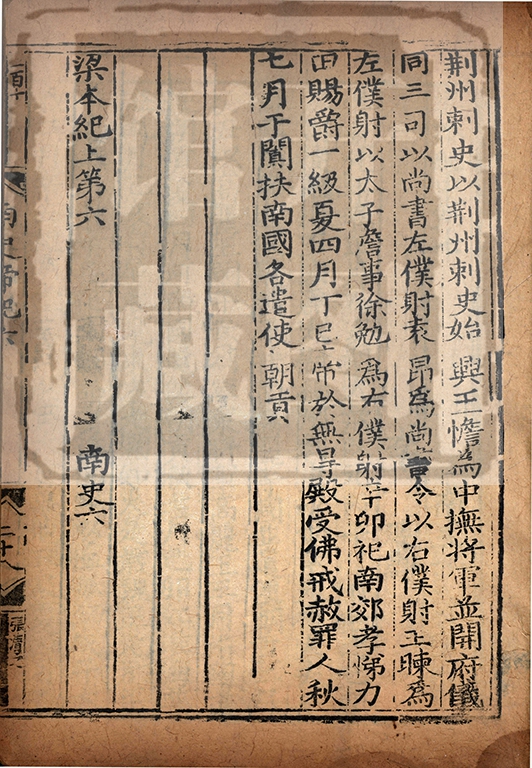 荆州刺史以荆州刺史始興王憺為中撫將軍並開府儀
同三司以尚書左僕射袁昂為尚書令以右僕射王暕為
左僕射以太子詹事徐勉為右僕射辛卯祀南郊孝悌力
田賜爵一級夏四月丁巳帝於無㝵殿受佛戒赦罪人秋
七月于闐扶南國各遣使朝貢
梁本紀上第六 南史六
南史帝紀六
館藏